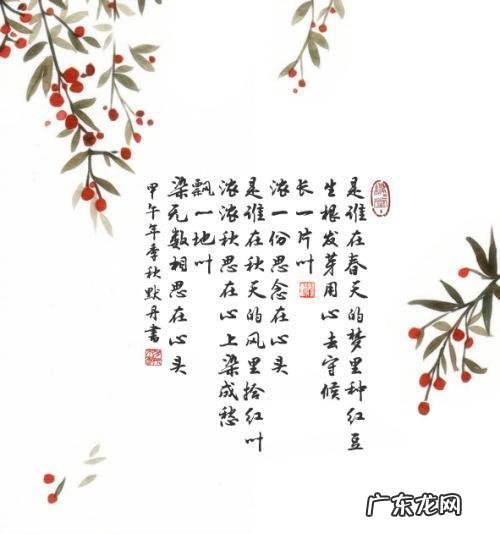 是谁在春天的梦里种红豆
生根发芽用心去守候
长一片叶
浓一份思念在心头
是谁在秋天的风里拾红叶
浓浓秋思在心上染成愁
飘一地叶
染无数相思在心头
甲午年季秋默丹书
广东龙网